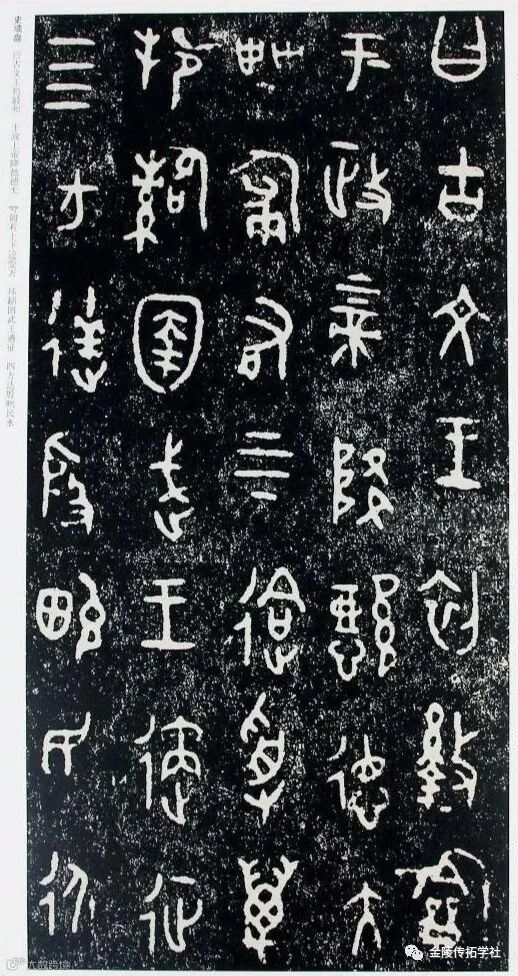 曰古文王初盭龢
于政上帝降懿德大
甹匍有上下迨受萬
邦圉武王遹征
四方達殷畯民永
史墙盘 曰古文王初盭和 于政上帝降懿德大 甹匍有上下迨受万 邦圉武王遹征 四方达殷畯民永
金陵传拓学社
大数跨境